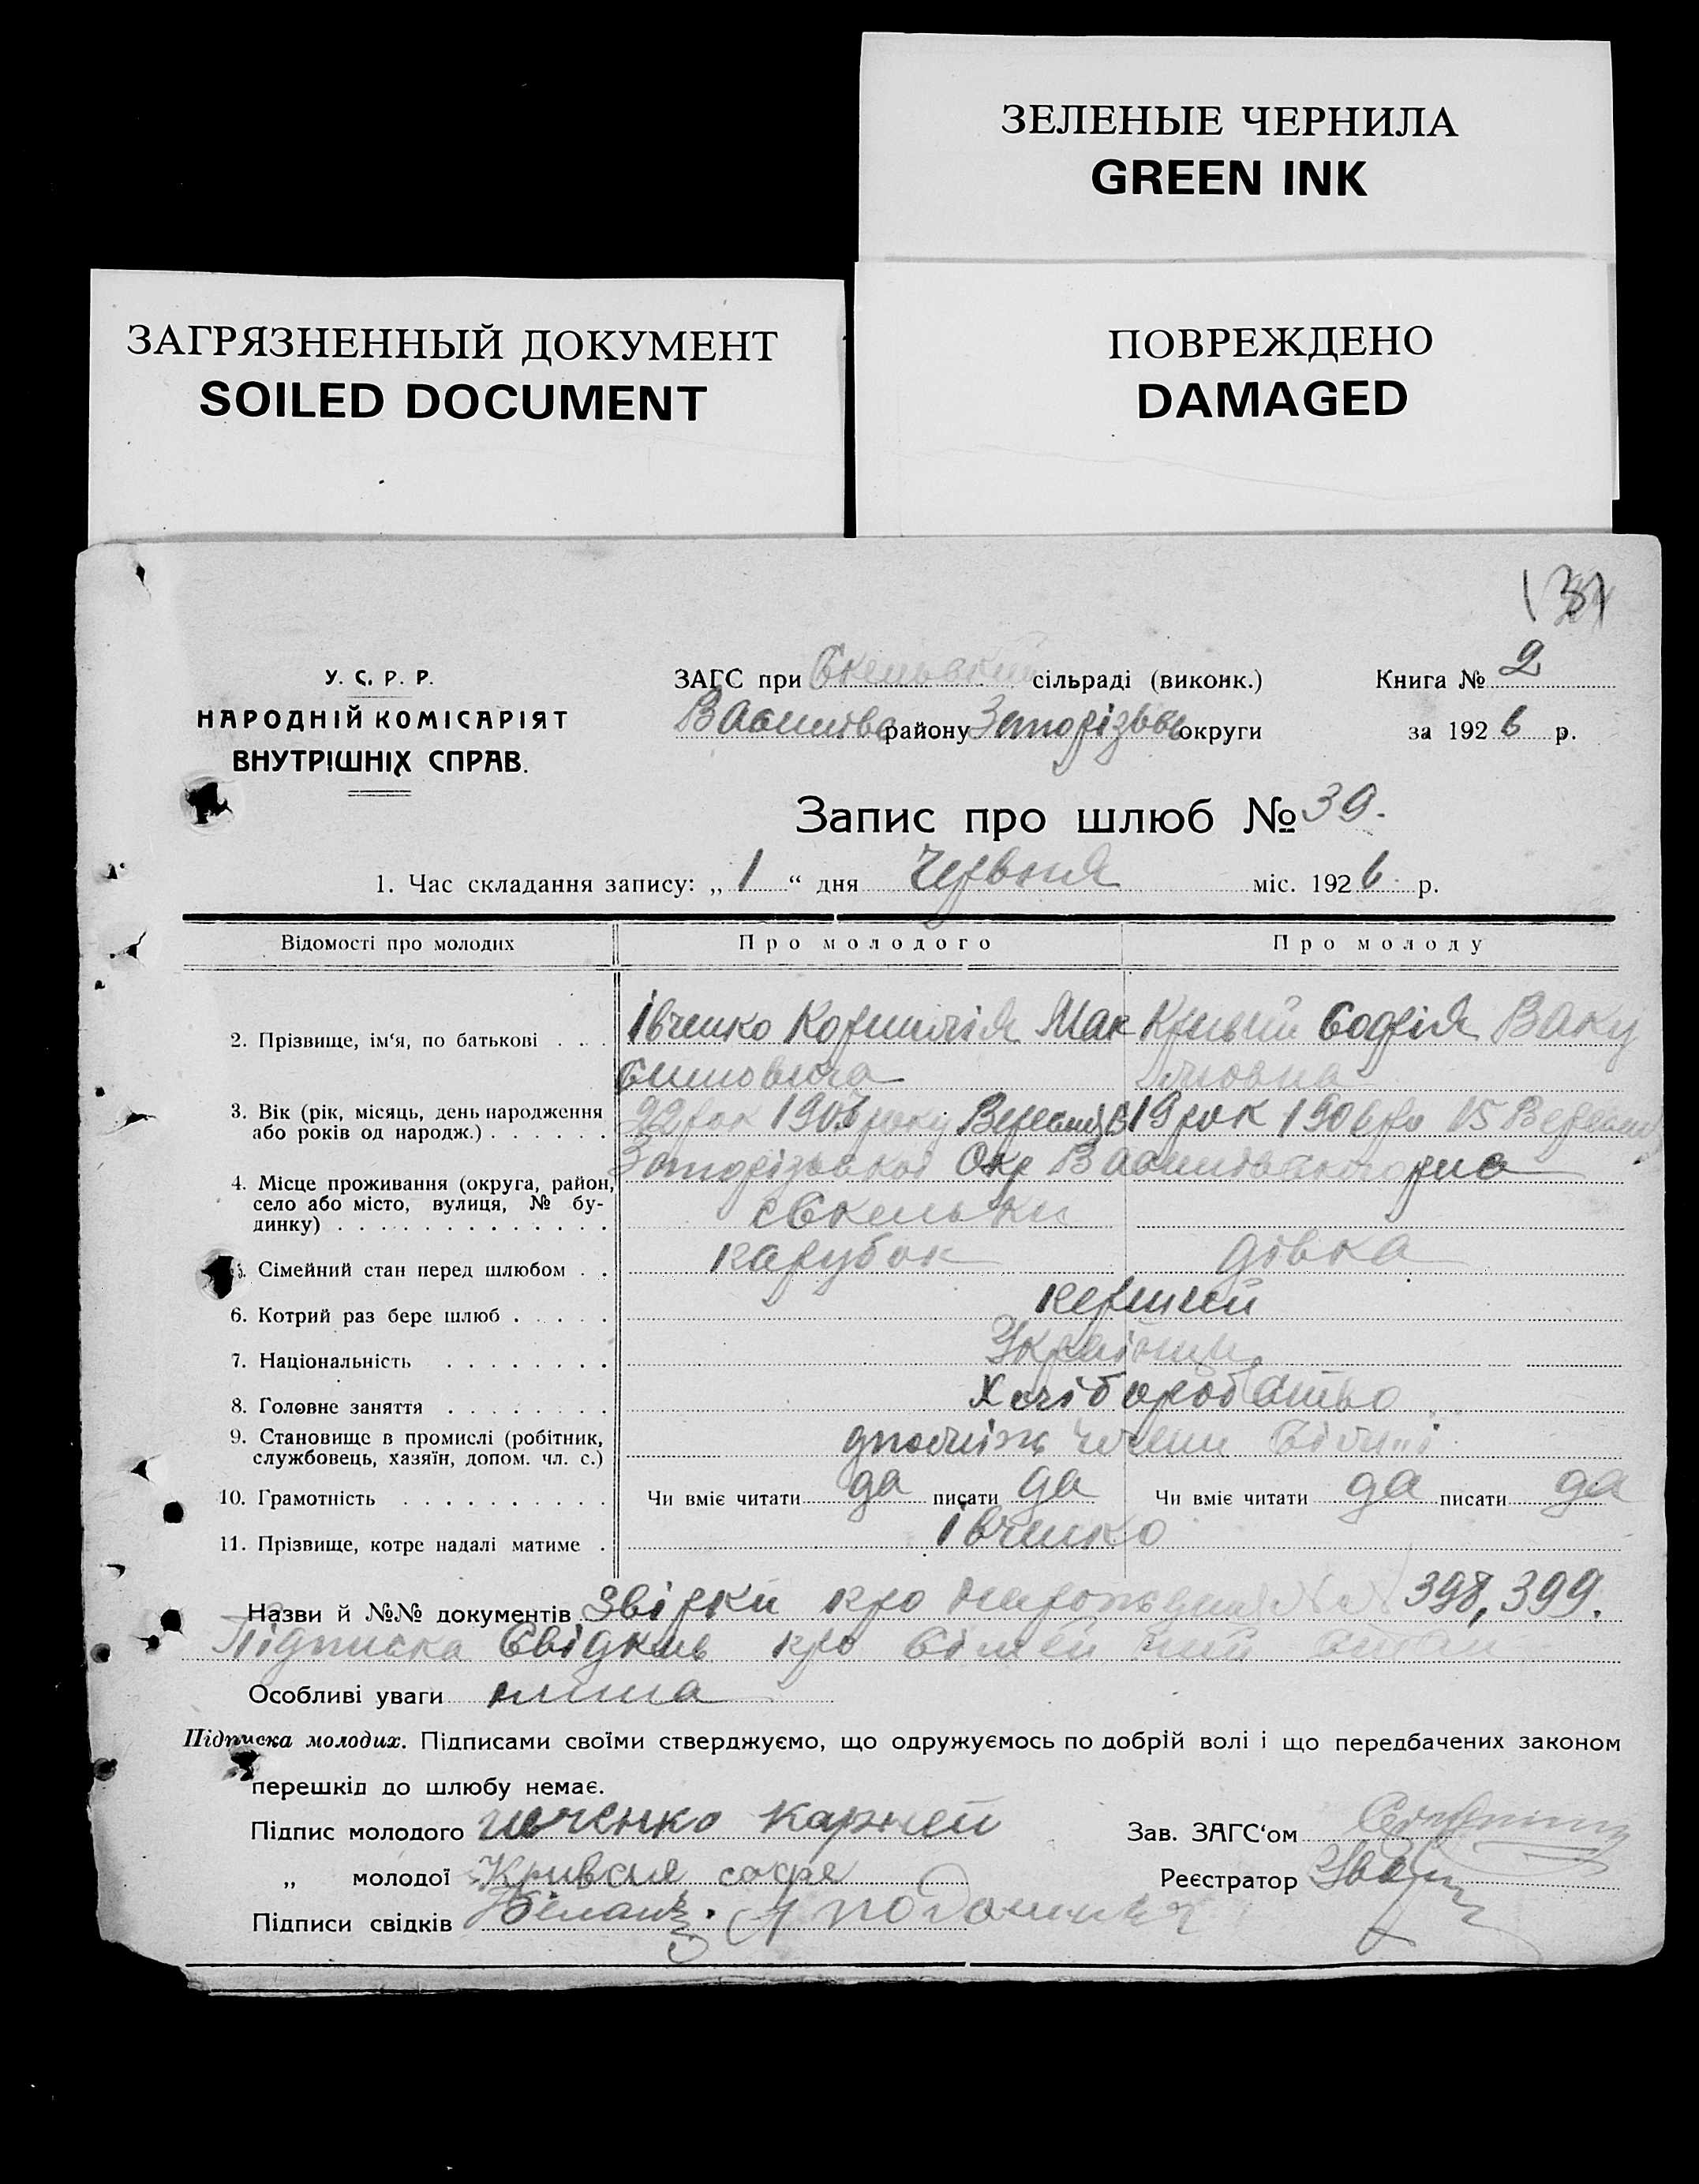 ЗЕЛЕНЫЕ ЧЕРНИЛА
GREEN INK
ЗАГРЯЗНЕННЫЙ ДОКУМЕНТ
SOILED DOCUMENT
ПОВРЕЖДЕНО
DAMAGED
У. С. Р. Р.
НАРОДНІЙ КОМІСАРІЯТ
ВНУТРІШНІХ СПРАВ.
ЗАГС при Скельовскій сільраді (виконк.)
району округи
Книга № 2
за 1926 р.
Запис про шлюб № 39.
1. Час складання запису: „ 1 “ дня Червня міс. 1926 р.
Відомості про молодих Про молодого Про молоду
2. Прізвище, ім'я, по батькові . . . Івченко Корнилія Мак Кривий Софія Ваку
симовича ловна
3. Вік (рік, місяць, день народження
або років од народж.) . . . . . . 22 рок року 19 рок 1906 15
4. Місце проживання (округа, район,
село або місто, вулиця, № бу-
динку) . . . . . . . . . . . . . Запорізької Окр
с Скельки
5. Сімейний стан перед шлюбом . . парубок дівка
6. Котрий раз бере шлюб . . . . . перший
7. Національність . . . . . . . Українці
8. Головне заняття . . . . . . . . Хліборобство
9. Становище в промислі (робітник,
службовець, хазяїн, допом. чл. с.) члени
10. Грамотність . . . . . . . . . . Чи вміє читати да писати да Чи вміє читати да писати да
11. Прізвище, котре надалі матиме . Івченко
Назви й №№ документів про 398, 399.
Підписка Свідків про сімейний стан
Особливі уваги нима
Підписка молодих. Підписами своїми стверджуємо, що одружуємось по добрій волі і що передбачених законом
перешкід до шлюбу немає.
Підпис молодого Ивченко Карней
Зав. ЗАГС'ом
„ молодої Кривая софе
Реєстратор
Підписи свідків